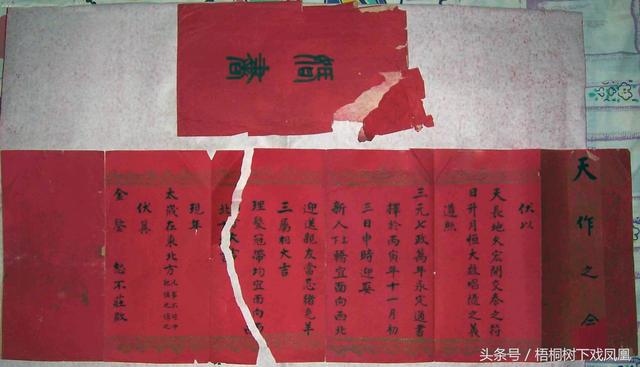 天作之合
伏以
天長地久宏開交泰之符
日升月恒大啟唱隨之義
遵照
三元七政萬年永定通書
擇於丙寅年十一月初
三日申時迎娶
新人下轎宜面向西北
迎送親友當忌猪兔羊
三屬相大吉
理髮冠帶均宜面向西
北
現年
太歲在東北方
伏冀
金鑒 恕不莊啟
頭条号 / 梧桐树下戏凤凰